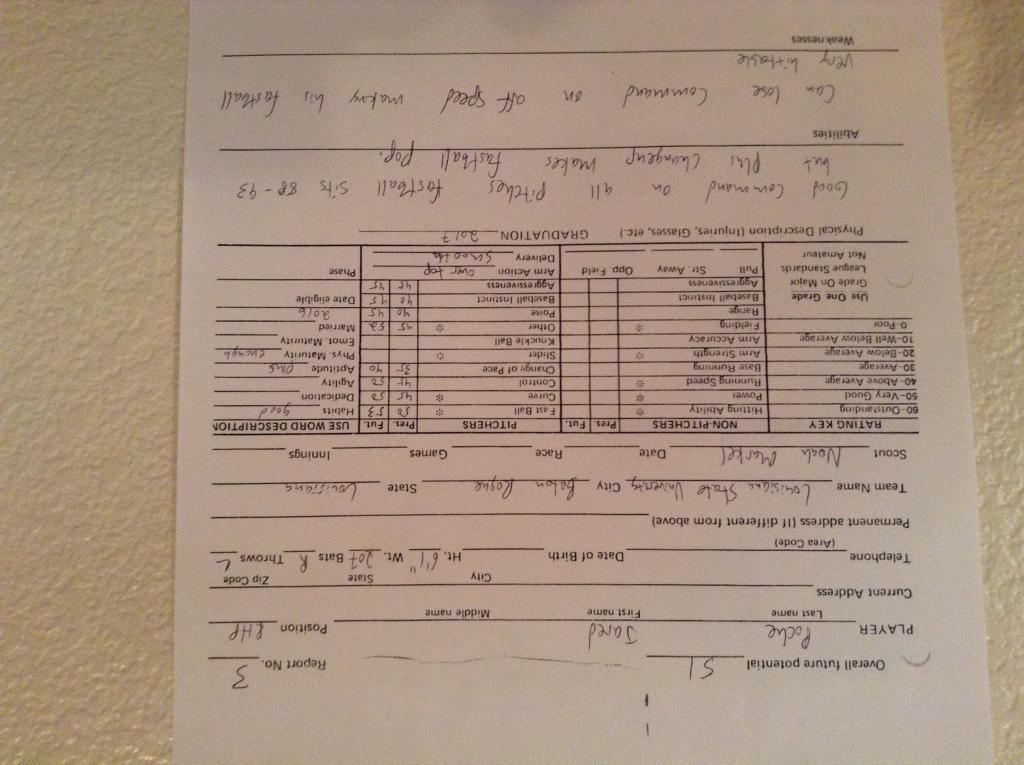 Overall future potential 51 Report No. 3
PLAYER Poche Jared Position RHP
Last name First name Middle name
Current Address
City State Zip Code
Telephone Date of Birth Ht. 6'1" Wt. 207 Bats R Throws L
(Area Code)
Permanent address (If different from above)
Team Name Louisiana State University City Baton Rogue State Louisiana
Scout Noah Markel Date Race Games Innings
RATING KEY NON-PITCHERS Pres. Fut. PITCHERS Pres. Fut. USE WORD DESCRIPTION
60-Outstanding Hitting Ability * Fast Ball * 50 53 Habits good
50-Very Good Power * Curve * 45 50 Dedication
40-Above Average Running Speed * Control 45 50 Agility
30-Average Base Running Change of Pace 35 40 Aptitude plus
20-Below Average Arm Strength * Slider * Phys. Maturity enough
10-Well Below Average Arm Accuracy Knuckle Ball Emot. Maturity
0-Poor Fielding * Other * 45 52 Married
Range Poise 40 45 2016
Use One Grade Baseball Instinct Baseball Instinct 40 45 Date eligible
Grade On Major Aggressiveness Aggressiveness 45 45
League Standards Pull Str. Away Opp. Field Arm Action over top Phase
Not Amateur Delivery Smooth
Physical Description (Injuries, Glasses, etc.) GRADUATION 2017
Good Command on all Pitches fastball Sits 88-93
but Plus Changeup makes fastball Pop.
Abilities
Can lose Command on off Speed making his fastball
very hittable
Weaknesses